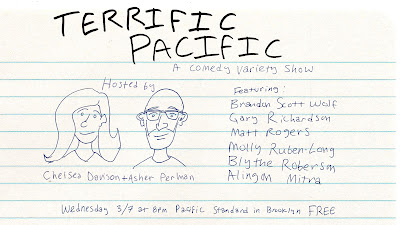 TERRIFIC
PACIFIC
A Comedy Variety Show
Hosted by
Chelsea Devison + Asher Perlman
Featuring:
Brandon Scott Wolf
Gary Richardson
Matt Rogers
Molly Ruben-Long
Blythe Roberson
Alingon Mitra
Wednesday 3/7 at 8pm Pacific Standard in Brooklyn FREE